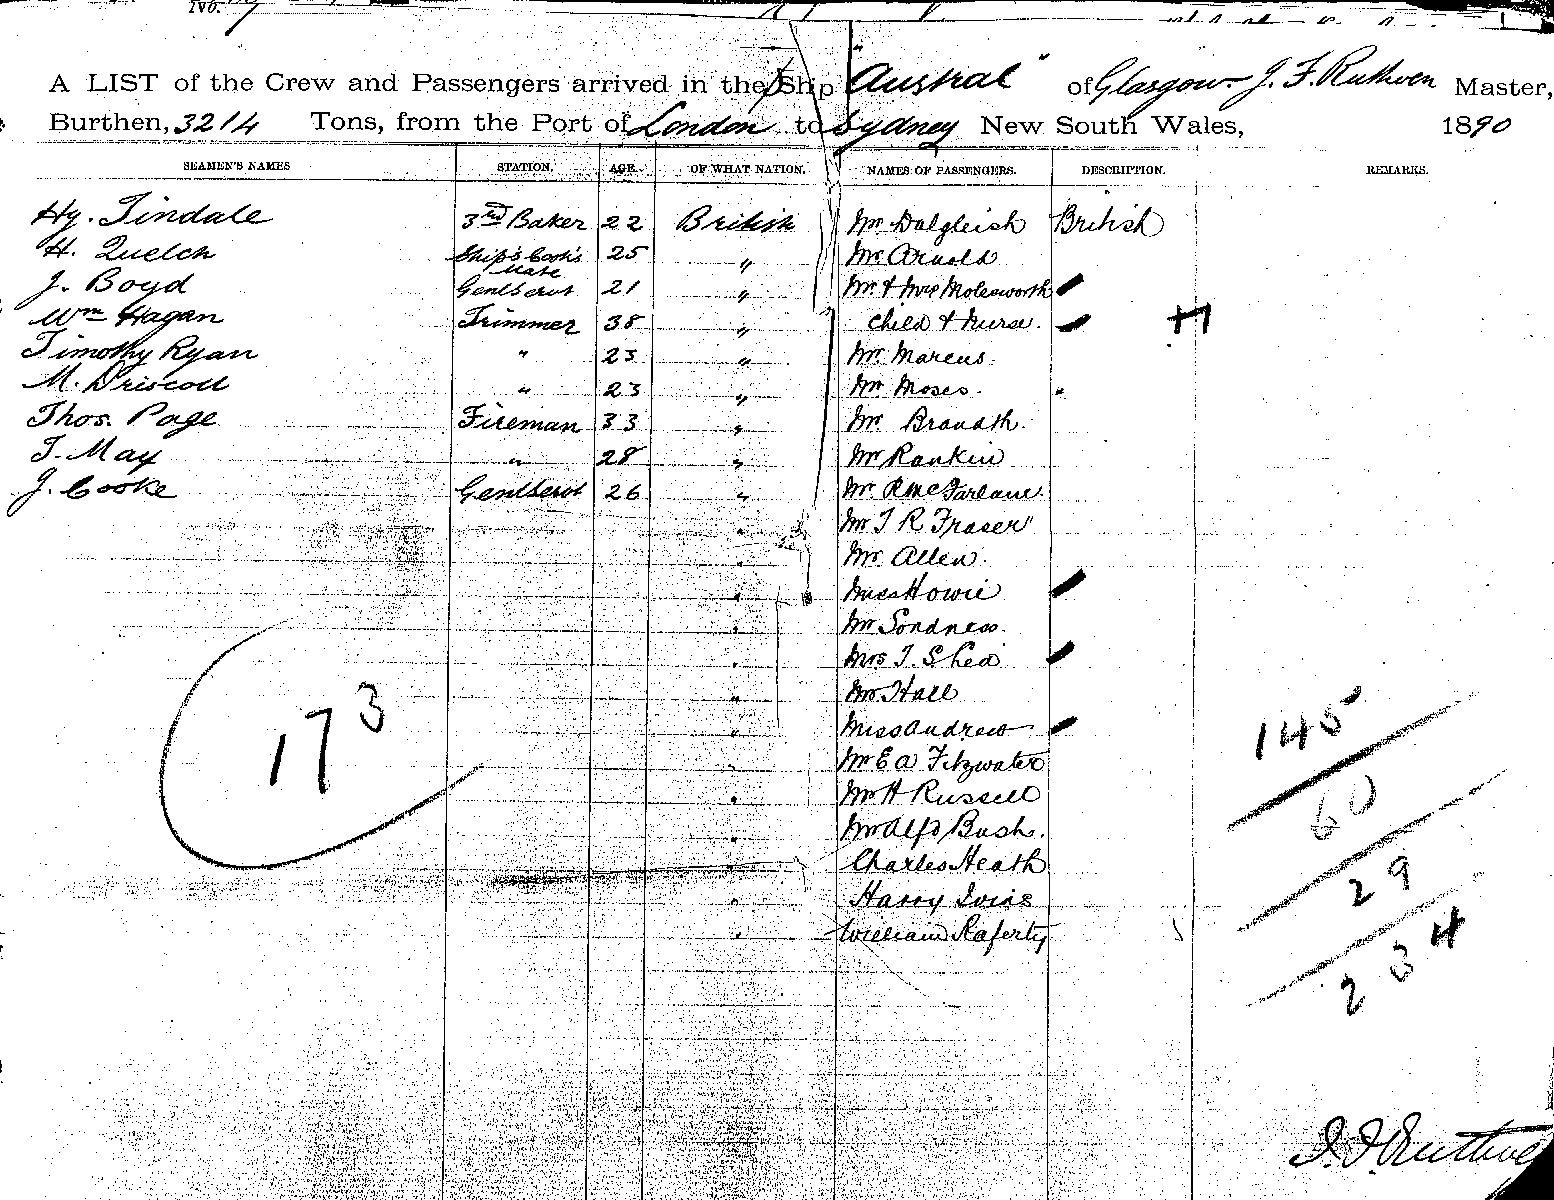 No.
A LIST of the Crew and Passengers arrived in the Ship "Austral" of Glasgow J. F. Ruthven Master,
Burthen, 3214 Tons, from the Port of London to Sydney New South Wales, 1890
SEAMEN'S NAMES STATION. AGE. OF WHAT NATION. NAMES OF PASSENGERS. DESCRIPTION. REMARKS.
Hy. Tindale 3rd Baker 22 British Mr Dalgleish British
H. Quelch Ship's Cook's Mate 25 " Mr Arnold
J. Boyd Genl Servt 21 " Mr & Mrs Molesworth
Wm Hagan Trimmer 38 " Child & Nurse. 4
Timothy Ryan " 23 " Mr Marcus.
M. Driscoll " 23 " Mr Moses.
Thos. Page Fireman 33 " Mr Brandth.
T. May " 28 " Mr Rankin
J. Cooke Genl Servt 26 " Mr R McFarlane.
" Mr T R Fraser
" Mr Allen.
" Miss Howie
" Mr Sondness.
" Mrs T. Shea
" Mr Hall
" Miss Andrew
" Mr E A Fitzwater
" Mr H Russell
" Mr Alfd Bush.
Charles Heath
" Harry Ivins
" William Raferty
173
145
60
29
234
J. F. Ruthven